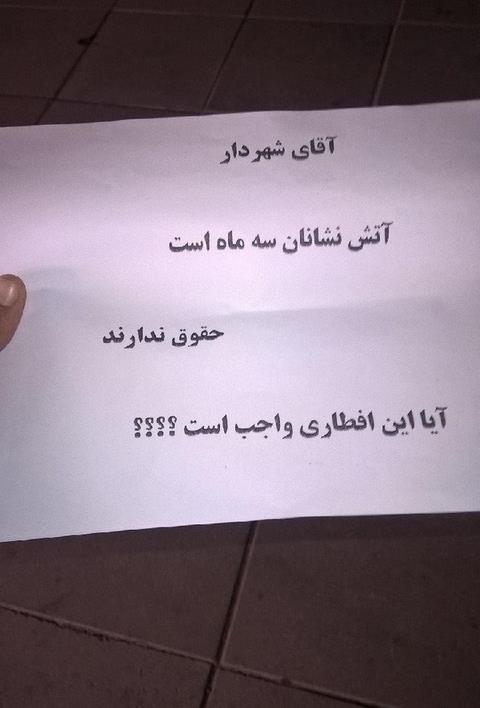 آقای شهردار
آتش نشانان سه ماه است
حقوق ندارند
آیا این افطاری واجب است ؟؟؟؟